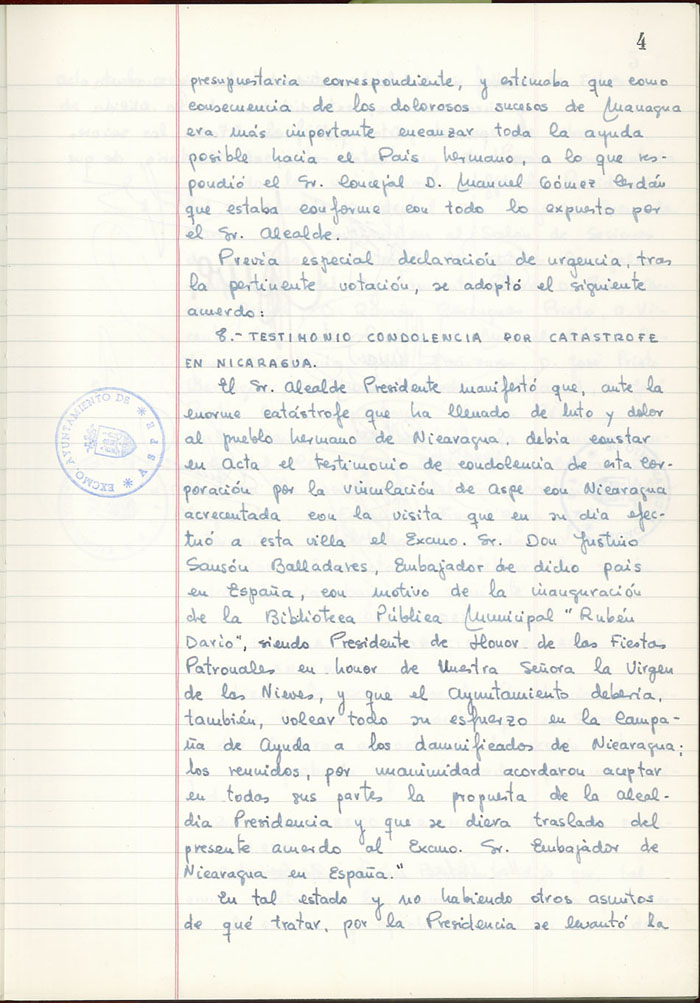 4
presupuestaria correspondiente, y estimaba que como
consecuencia de los dolorosos sucesos de Managua
era más importante encauzar toda la ayuda
posible hacia el País hermano, a lo que res-
pondió el Sr. Concejal D. Manuel Gómez Cerdán
que estaba conforme con todo lo expuesto por
el Sr. Alcalde.
Previa especial declaración de urgencia, tras
la pertinente votación, se adoptó el siguiente
acuerdo:
8.- TESTIMONIO CONDOLENCIA POR CATASTROFE
EN NICARAGUA.
El Sr. Alcalde Presidente manifestó que, ante la
enorme catástrofe que ha llenado de luto y dolor
al pueblo hermano de Nicaragua, debía constar
en Acta el testimonio de condolencia de esta Cor-
poración por la vinculación de Aspe con Nicaragua
acrecentada con la visita que en su día efec-
tuó a esta villa el Excmo. Sr. Don Justino
Sansón Balladares, Embajador de dicho pais
en España, con motivo de la inauguración
de la Biblioteca Pública Municipal "Rubén
Dario", siendo Presidente de Honor de las Fiestas
Patronales en honor de Nuestra Señora la Virgen
de las Nieves, y que el Ayuntamiento debería,
también, volcar todo su esfuerzo en la Campa-
ña de Ayuda a los damnificados de Nicaragua;
los reunidos, por unanimidad acordaron aceptar
en todas sus partes la propuesta de la Alcal-
día Presidencia y que se diera traslado del
presente acuerdo al Excmo. Sr. Embajador de
Nicaragua en España."
En tal estado y no habiendo otros asuntos
de qué tratar, por la Presidencia se levantó la
EXCMO AYUNTAMIENTO DE * ASPE *